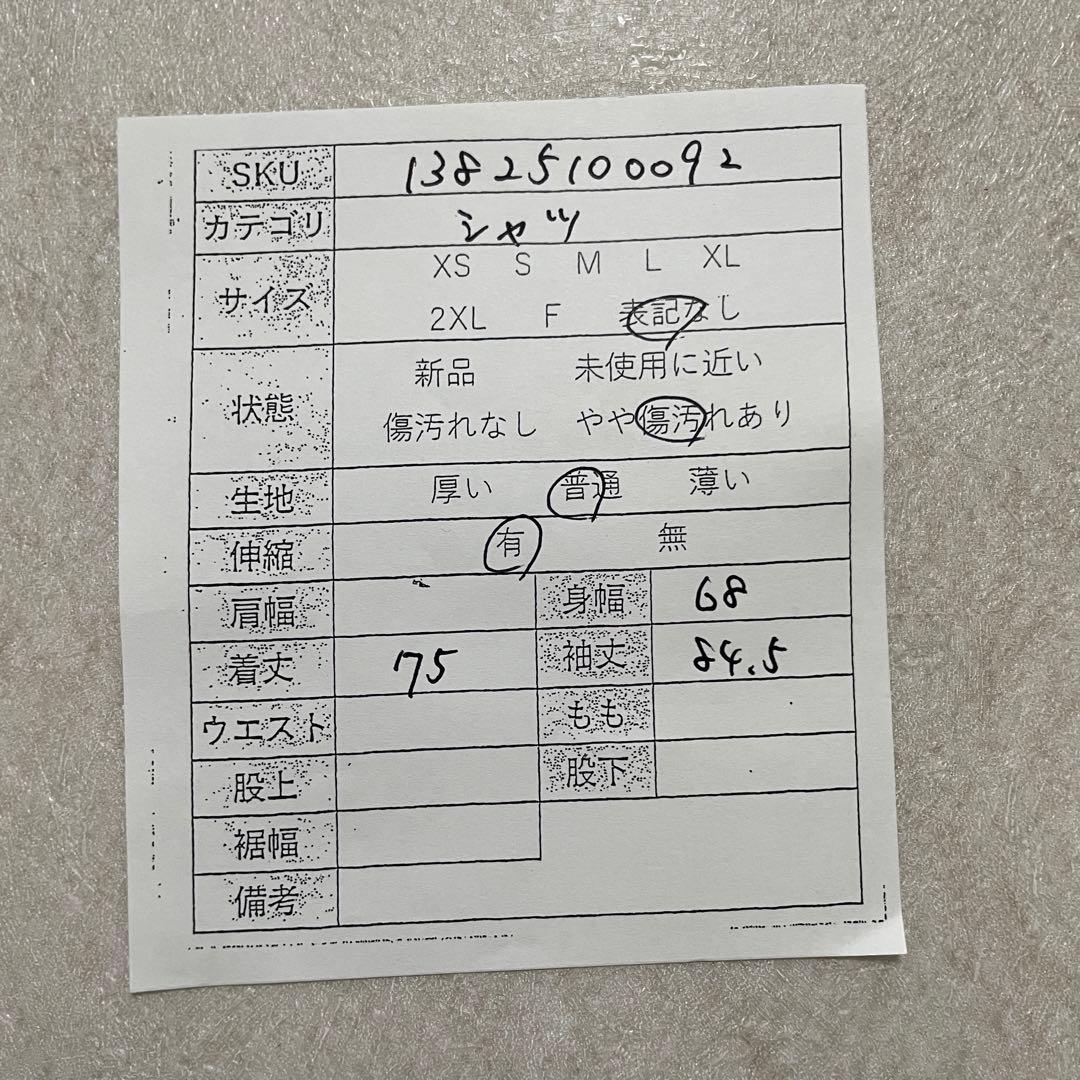 SKU 13825100092
カテゴリ シャツ
サイズ XS S M L XL
2XL F 表記なし
状態 新品 未使用に近い
傷汚れなし やや傷汚れあり
生地 厚い 普通 薄い
伸縮 有 無
肩幅 身幅 68
着丈 75 袖丈 84.5
ウエスト もも
股上 股下
裾幅
備考